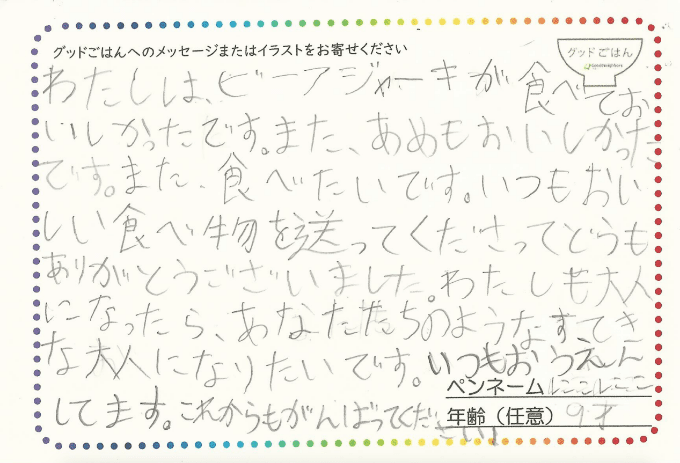 グッドごはんへのメッセージまたはイラストをお寄せください
グッドごはん
わたしは、ビーフジャーキーが食べてお
いしかったです。また、あめもおいしかった
です。また、食べたいです。いつもおい
しい食べ物を送ってくださってどうも
ありがとうございました。わたしも大人
になったら、あなたたちのようなすてき
な大人になりたいです。いつもおうえん
してます。これからもがんばってください!
ペンネーム にこにこ
年齢(任意) 9才